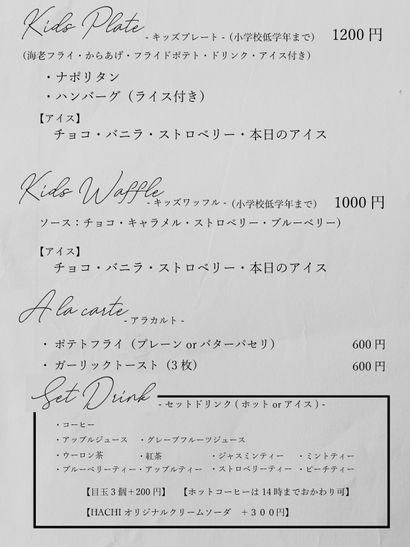 Kids Plate - キッズプレート - (小学校低学年まで) 1200 円
(海老フライ・からあげ・フライドポテト・ドリンク・アイス付き)
・ナポリタン
・ハンバーグ（ライス付き）
【アイス】
チョコ・バニラ・ストロベリー・本日のアイス
Kids Waffle - キッズワッフル - (小学校低学年まで) 1000 円
ソース：チョコ・キャラメル・ストロベリー・ブルーベリー）
【アイス】
チョコ・バニラ・ストロベリー・本日のアイス
A la carte - アラカルト -
・ ポテトフライ（プレーン or バターパセリ） 600 円
・ ガーリックトースト（3 枚） 600 円
Set Drink - セットドリンク ( ホット or アイス ) -
・コーヒー
・アップルジュース ・グレープフルーツジュース
・ウーロン茶 ・紅茶 ・ジャスミンティー ・ミントティー
・ブルーベリーティー・アップルティー ・ストロベリーティー ・ピーチティー
【目玉 3 個＋200 円】 【ホットコーヒーは 14 時までおかわり可】
【HACHI オリジナルクリームソーダ ＋３００円】